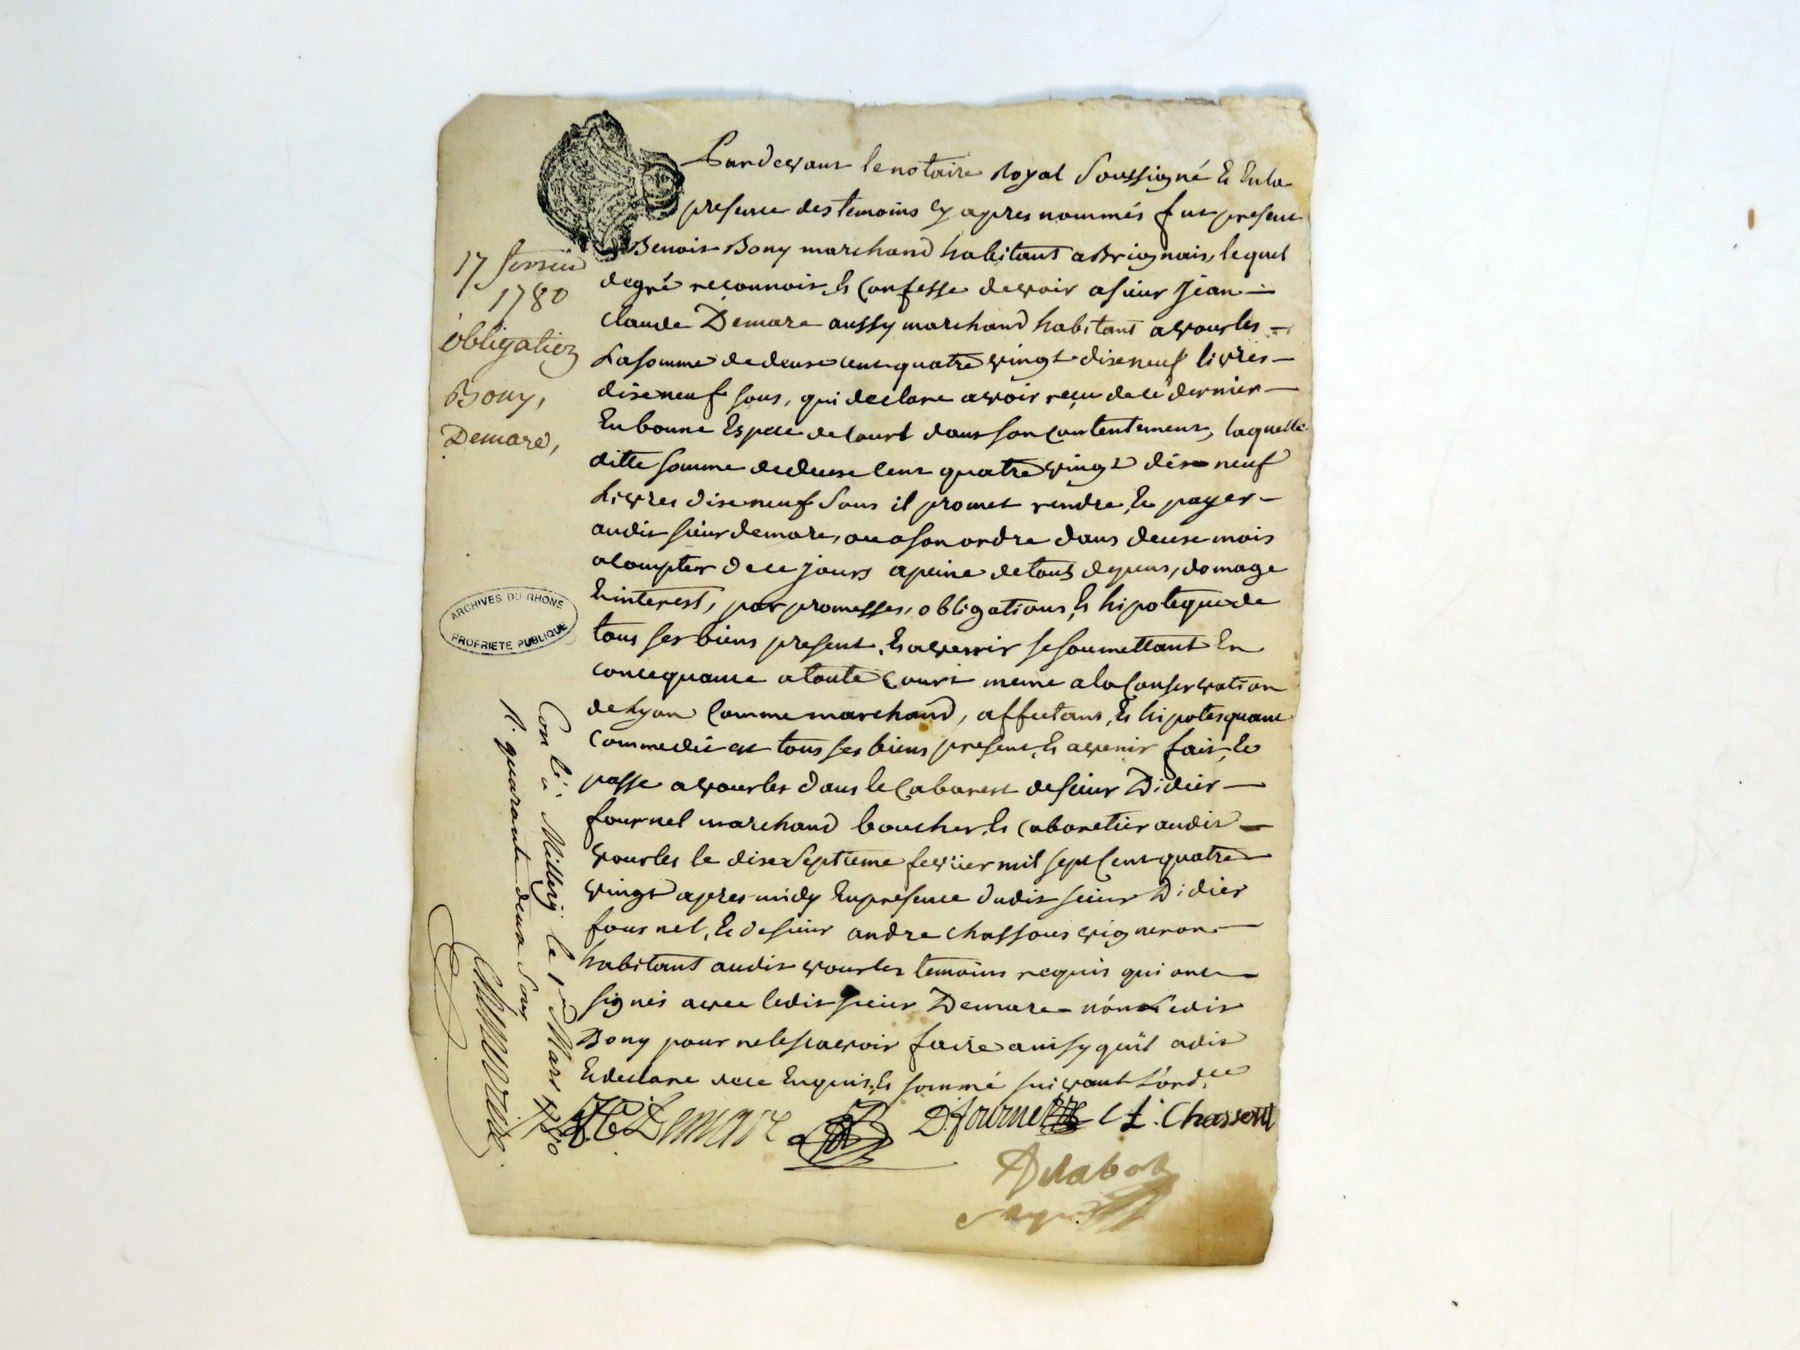 Pardevant le notaire Royal Soussigné & En la
presence des temoins cy apres nommés fut present
Benoit Bony marchand habitant a Brignais, lequel
de gré reconnoit & Confesse devoir a sieur Jean
Claude Demare aussy marchand habitant a vourles
La somme de deuse cent quatre vingt dise neuf livres
dise neuf sous, qui declare avoir reçu de ce dernier
En bonne Espece de Court dont son Contentement, laquelle
ditte somme de deuse Cent quatre vingt dise neuf
Livres dise neuf Sous il promet rendre & payer
audit sieur demare, ou a son ordre dans deuse mois
a compter de ce jours a peine de tous depens, domage
& interest, par promesses, obligations & hipoteque de
tous ses biens present & avenir se soumettant En
concequance a toute Court meme a la Conservation
de Lyon Comme marchand, affectant & hipotesquant
Comme dit est tous ses biens present & avenir fait &
passe a vourles dans le Cabarest de sieur Didier
fournel marchand boucher & Cabaretier audit
vourles le dise Septieme fevrier mil sept Cent quatre
vingt apres midy En presence dudit sieur Didier
fournel, & de sieur andre chassous vigneron
habitant audit vourles temoins requis qui ont
signés avec ledit sieur Demare non Ledit
Bony pour ne le scavoir faire ainsy qu'il a dit
& declare de ce Enquis & sommé suivant L'ord.ce
J C Demare D. fournel A. Chassou
17 fevrier
1780
obligation
Bony,
Demare,
ARCHIVES DU RHONE
PROPRIETE PUBLIQUE
Con.lé à Millery le Mars 1780
R. quarante deux Sous